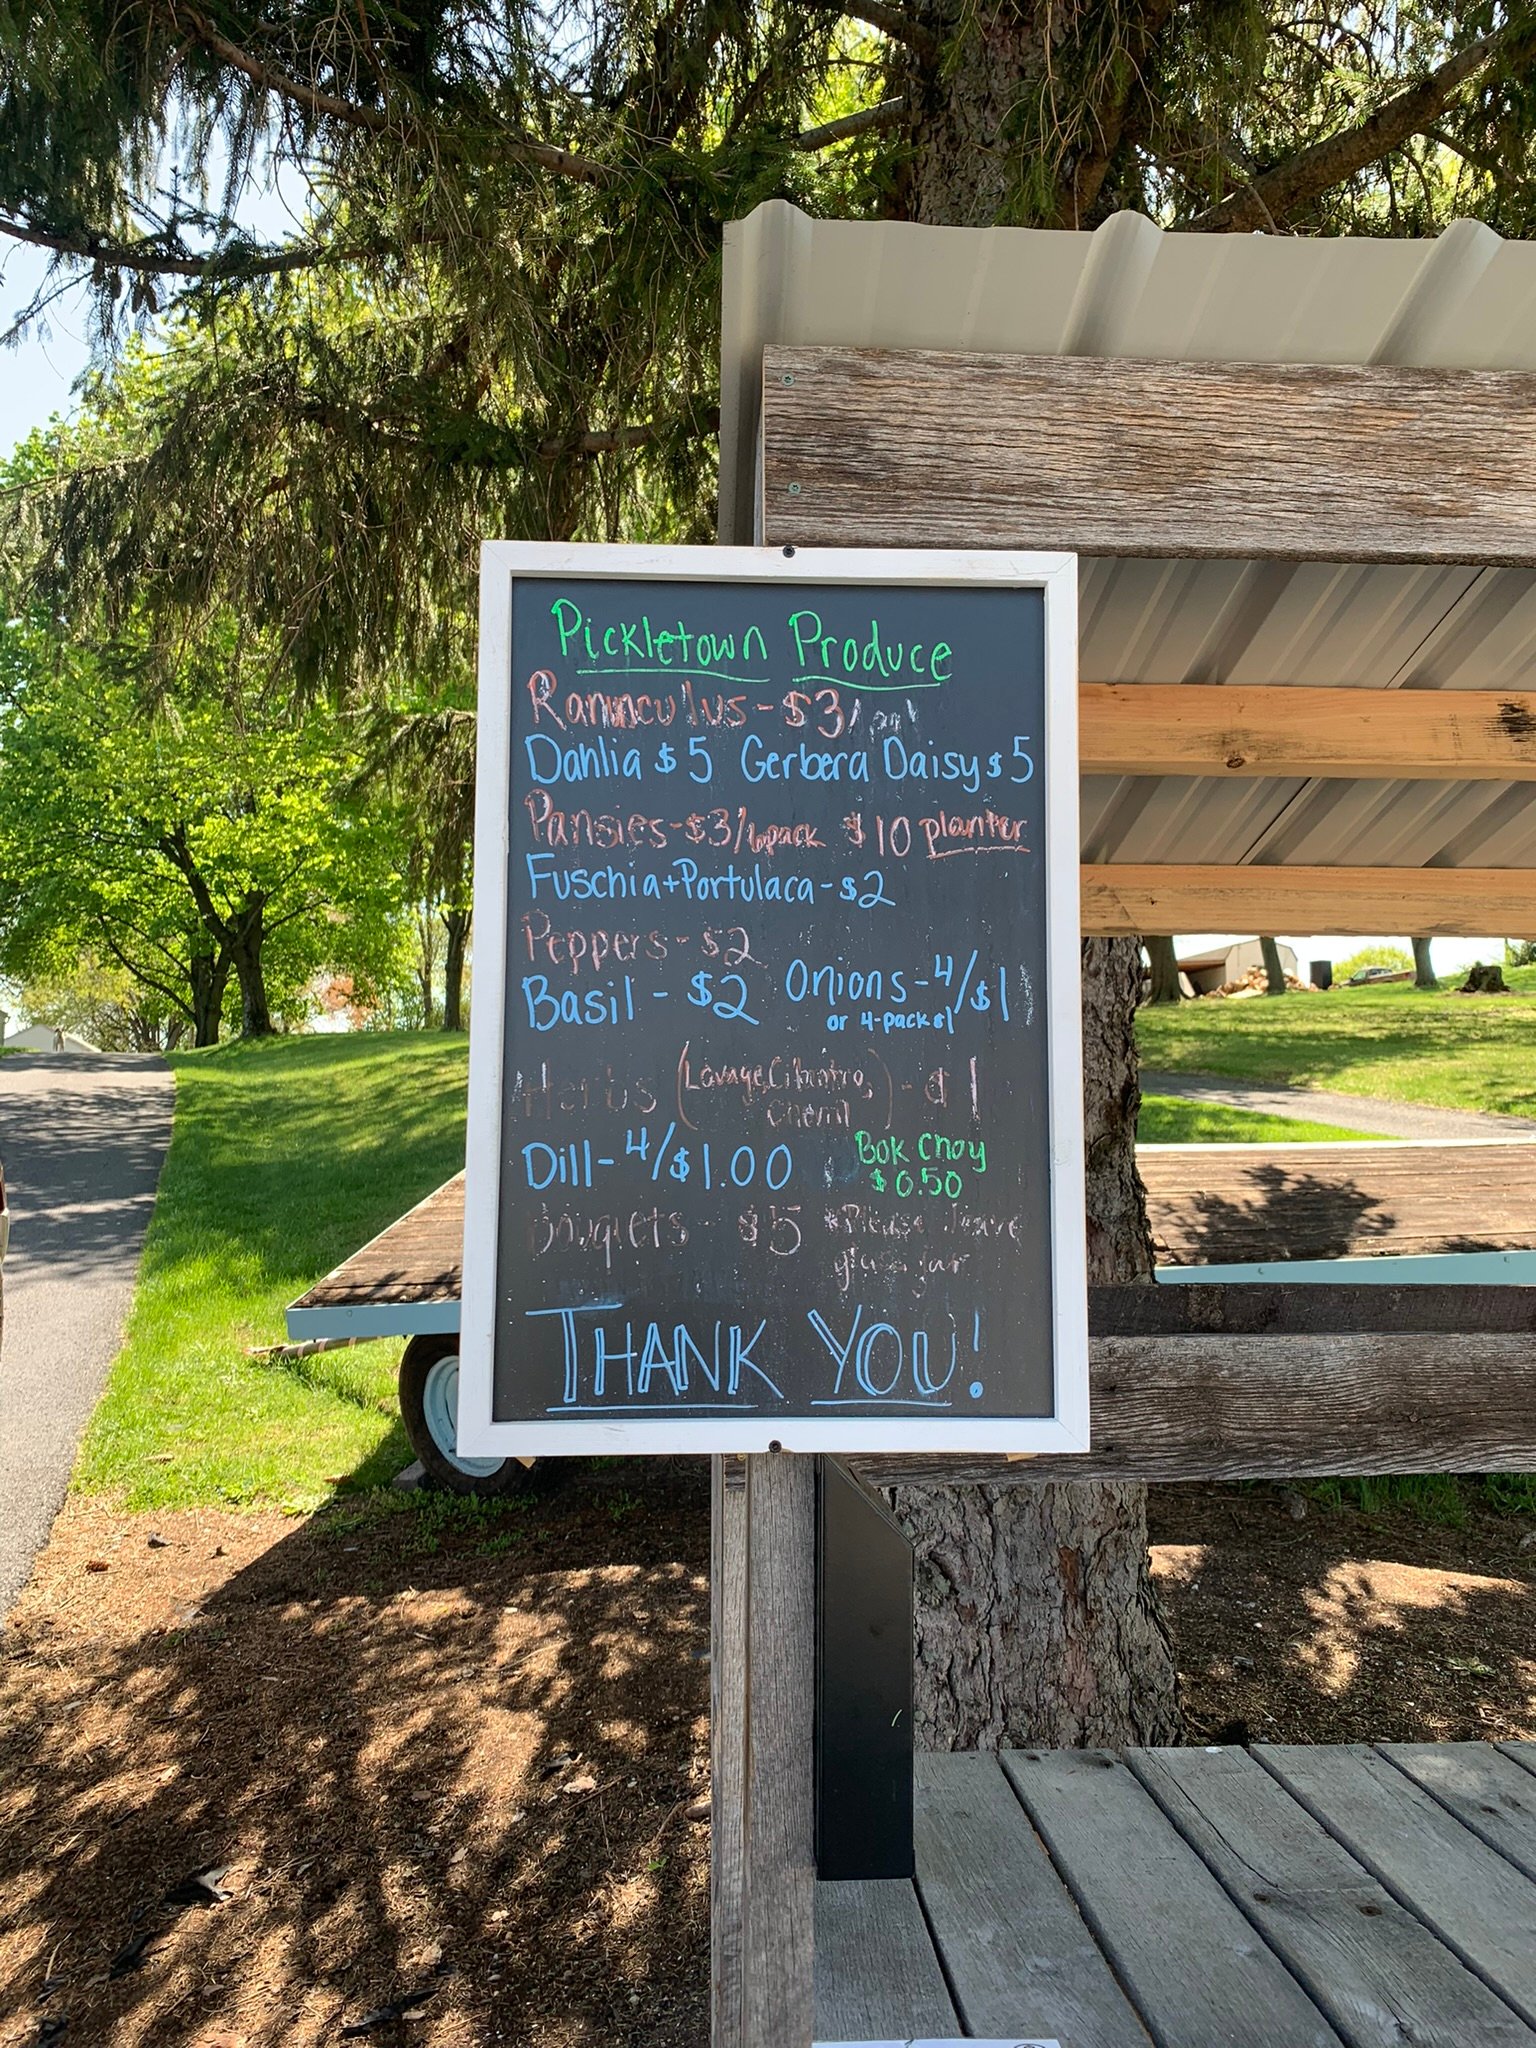 Pickletown Produce
Ranunculus - $3/
Dahlia $5 Gerbera Daisy $5
Pansies - $3/6pack $10 planter
Fuschia + Portulaca - $2
Peppers - $2
Basil - $2 Onions - 4/$1
or 4-pack $1
Herbs (Lovage, Cilantro, Chervil) - $1
Dill - 4/$1.00 Bok Choy
$0.50
Bouquets - $5 *Please leave
glass jar
THANK YOU!